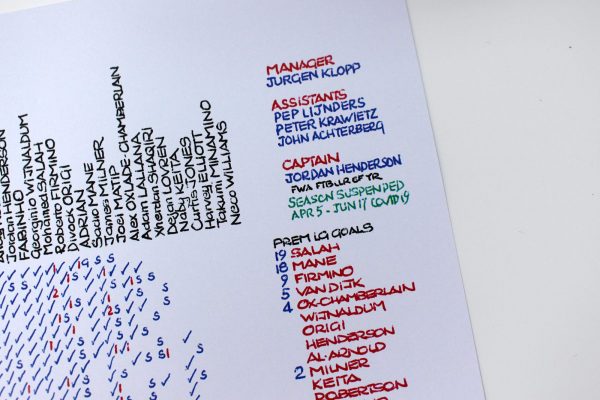 Jordan HENDERSON
FABINHO
Georginio WIJNALDUM
Mohamed SALAH
Roberto FIRMINO
Divock ORIGI
ADRIAN
Sadio MANE
James MILNER
Joel MATIP
Alex OXLADE-CHAMBERLAIN
Adam LALLANA
Xherdan SHAQIRI
Dejan LOVREN
Naby KEITA
Curtis JONES
Harvey ELLIOTT
Takumi MINAMINO
Neco WILLIAMS
MANAGER
JURGEN KLOPP
ASSISTANTS
PEP LIJNDERS
PETER KRAWIETZ
JOHN ACHTERBERG
CAPTAIN
JORDAN HENDERSON
FWA FTBLLR OF YR
SEASON SUSPENDED
APR 5 - JUN 17 COVID 19
PREM LG GOALS
19 SALAH
18 MANE
9 FIRMINO
5 VAN DIJK
4 OX-CHAMBERLAIN
WIJNALDUM
ORIGI
HENDERSON
AL-ARNOLD
2 MILNER
KEITA
ROBERTSON